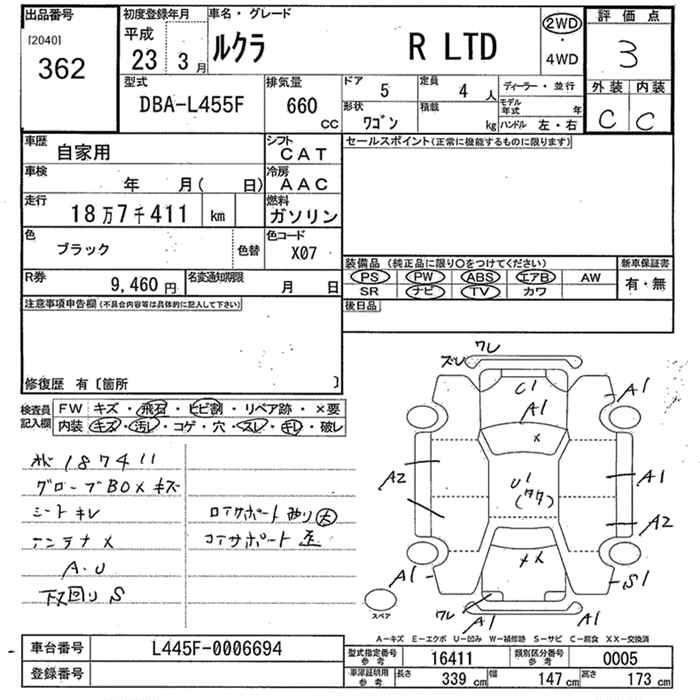 出品番号
[2040]
362
初度登録年月
平成
23 3月
車名・グレード
ルクラ R LTD
2WD
・
4WD
評価点
3
外装 内装
C C
型式
DBA-L455F
排気量
660 cc
ドア 5
定員 4 人
形状 ワゴン
積載 kg
ディーラー・並行
モデル年式 年
ハンドル 左・右
車歴 自家用
シフト CAT
車検 年 月( 日)
冷房 AAC
走行 18万7千411 km
燃料 ガソリン
色 ブラック 色替
色コード X07
R券 9,460円
名変通知期限 月 日
セールスポイント(正常に機能するものに限ります)
装備品(純正品に限り○をつけてください)
PS PW ABS エアB AW
SR ナビ TV カワ
新車保証書
有・無
後日品
注意事項申告欄(不具合内容等は具体的に記入して下さい)
修復歴 有〔箇所 〕
検査員記入欄
FW キズ・飛石・ヒビ割・リペア跡・×要
内装 キズ・汚レ・コゲ・穴・スレ・キレ・破レ
187411
グローブBOXキズ
シートキレ
アンテナ×
A・U
下回りS
コアサポート
ワレ
ズレ
C1
A1
A1
×
A2
U1
A1
A2
××
A1
S1
ワレ
A1
A1
スペア
A-キズ E-エクボ U-凹み W-補修跡 S-サビ C-腐食 XX-交換済
車台番号 L445F-0006694
登録番号
型式指定番号 参考 16411
類別区分番号 参考 0005
車庫証明用 参考 長さ 339 cm 幅 147 cm 高さ 173 cm